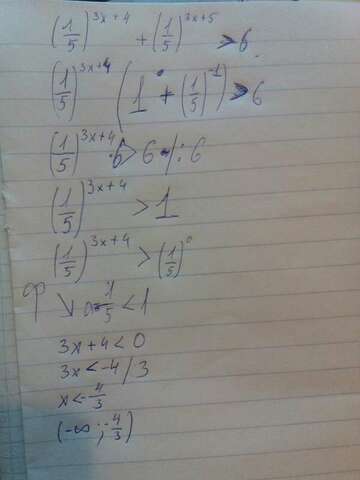 (1/5)^{3x+4} + (1/5)^{3x+5} > 6
(1/5)^{3x+4} (1 + (1/5)^{-1}) > 6
(1/5)^{3x+4} · 6 > 6 /: 6
(1/5)^{3x+4} > 1
(1/5)^{3x+4} > (1/5)^0
ср ↘ a = 1/5 < 1
3x + 4 < 0
3x < -4 / 3
x < -4/3
(-∞; -4/3)